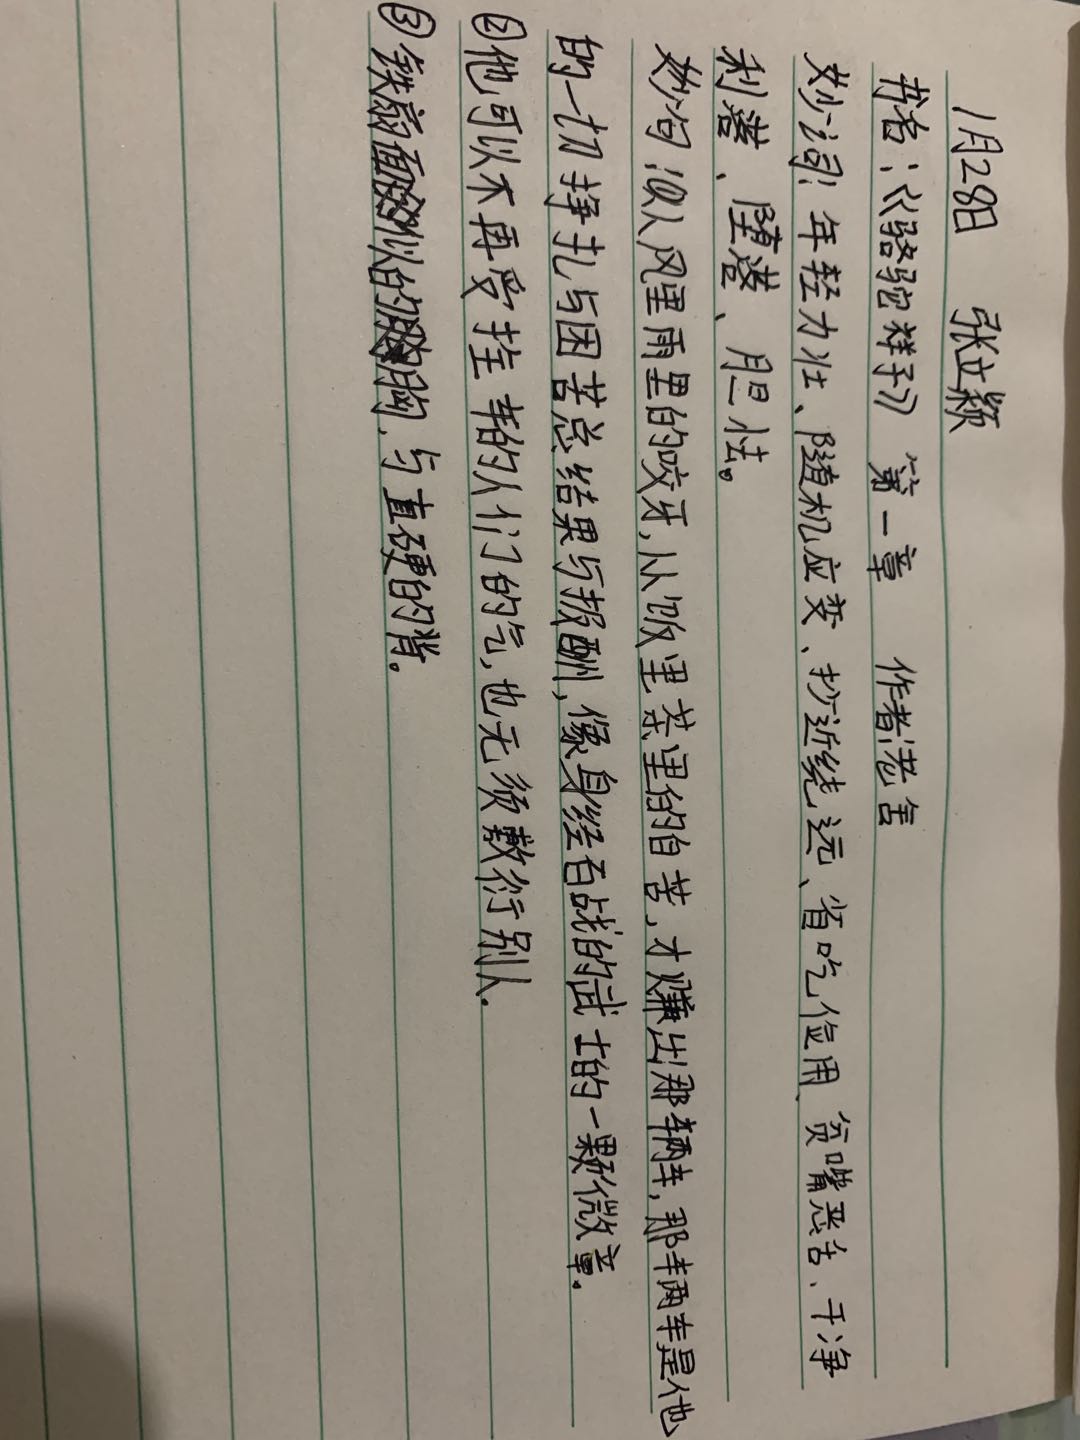 1月28日 张立颖
书名:《骆驼祥子》 第一章 作者:老舍
妙词:年轻力壮、随机应变、抄近绕远、省吃俭用、贫嘴恶舌、干净
利落、堕落、胆怯。
妙句:①从风里雨里的咬牙,从饭里茶里的自苦,才赚出那辆车,那辆车是他
的一切挣扎与困苦总结果与报酬,像身经百战的武士的一颗微章。
②他可以不再受拴车的人们的气,也无须敷衍别人。
③铁扇面似的胸,与直硬的背。